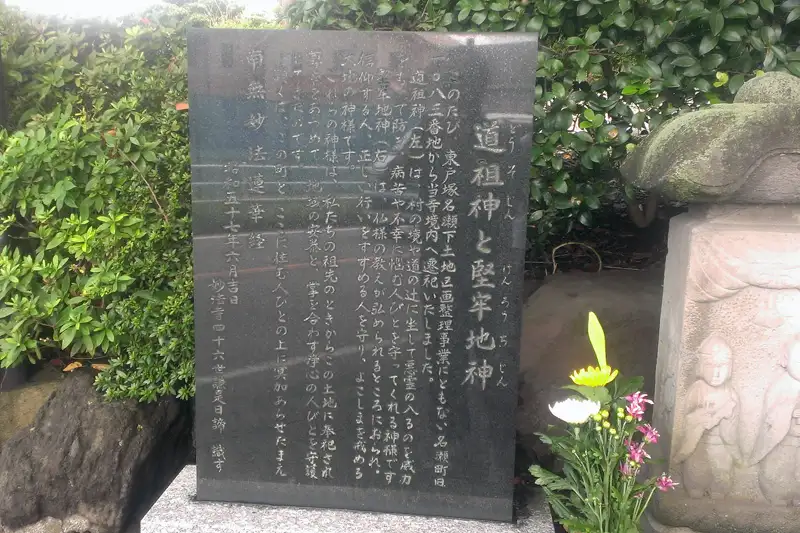 道祖神と堅牢地神
どうそじん けんろうちじん
このたび、東戸塚名瀬下土地区画整理事業にともない名瀬町旧
一〇八三番地から当寺境内へ遷祀いたしました。
道祖神(左)は、村の境や道の辻に坐して悪霊の入るのを威力
をもって防ぎ、病苦や不幸に悩む人びとを守ってくれる神様です
堅牢地神(右)は、仏様の教えが弘められるところにおられ、
信仰する人、正しい行いをすすめる人を守り、よこしまを戒める
大地の神様です。
これらの神様は、私たちの祖先のときからこの土地に奉祀され
尊崇をあつめて、地域の安泰と、掌を合わす浄心の人びとを守護
してきたのです。
願くは、この町と、ここに住む人びとの上に冥加あらせたまえ
南無妙法蓮華経
昭和五十七年六月吉日
妙法寺四十六世 是日 識す